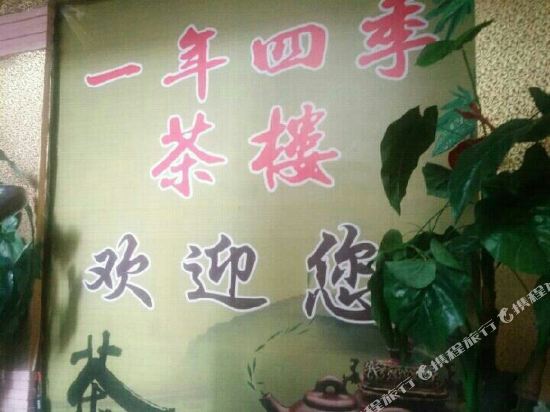 一年四季
茶楼
欢迎您
茶
携程旅行
携程旅行